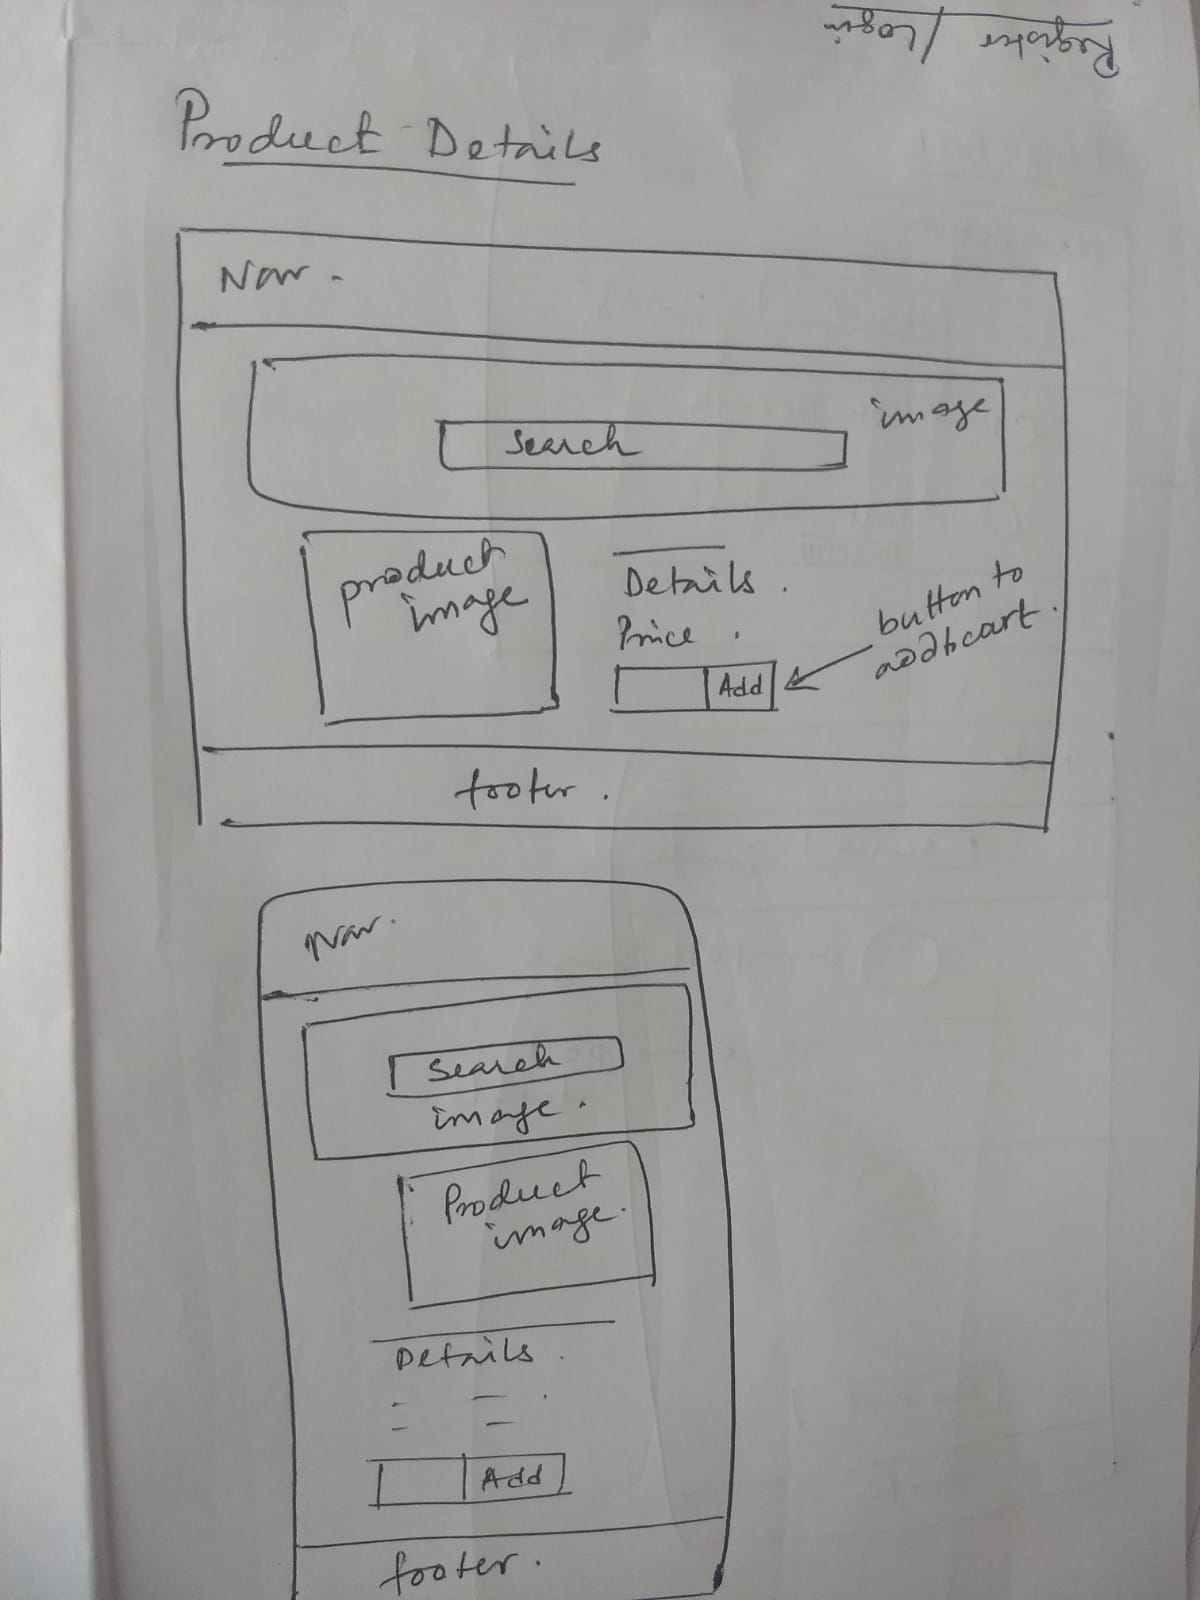 Register / Login
Product Details
Nav.
image
Search
product
image
Details.
Price.
Add
button to
addtocart.
footer.
Nav.
Search
image.
Product
image.
Details.
Add
footer.